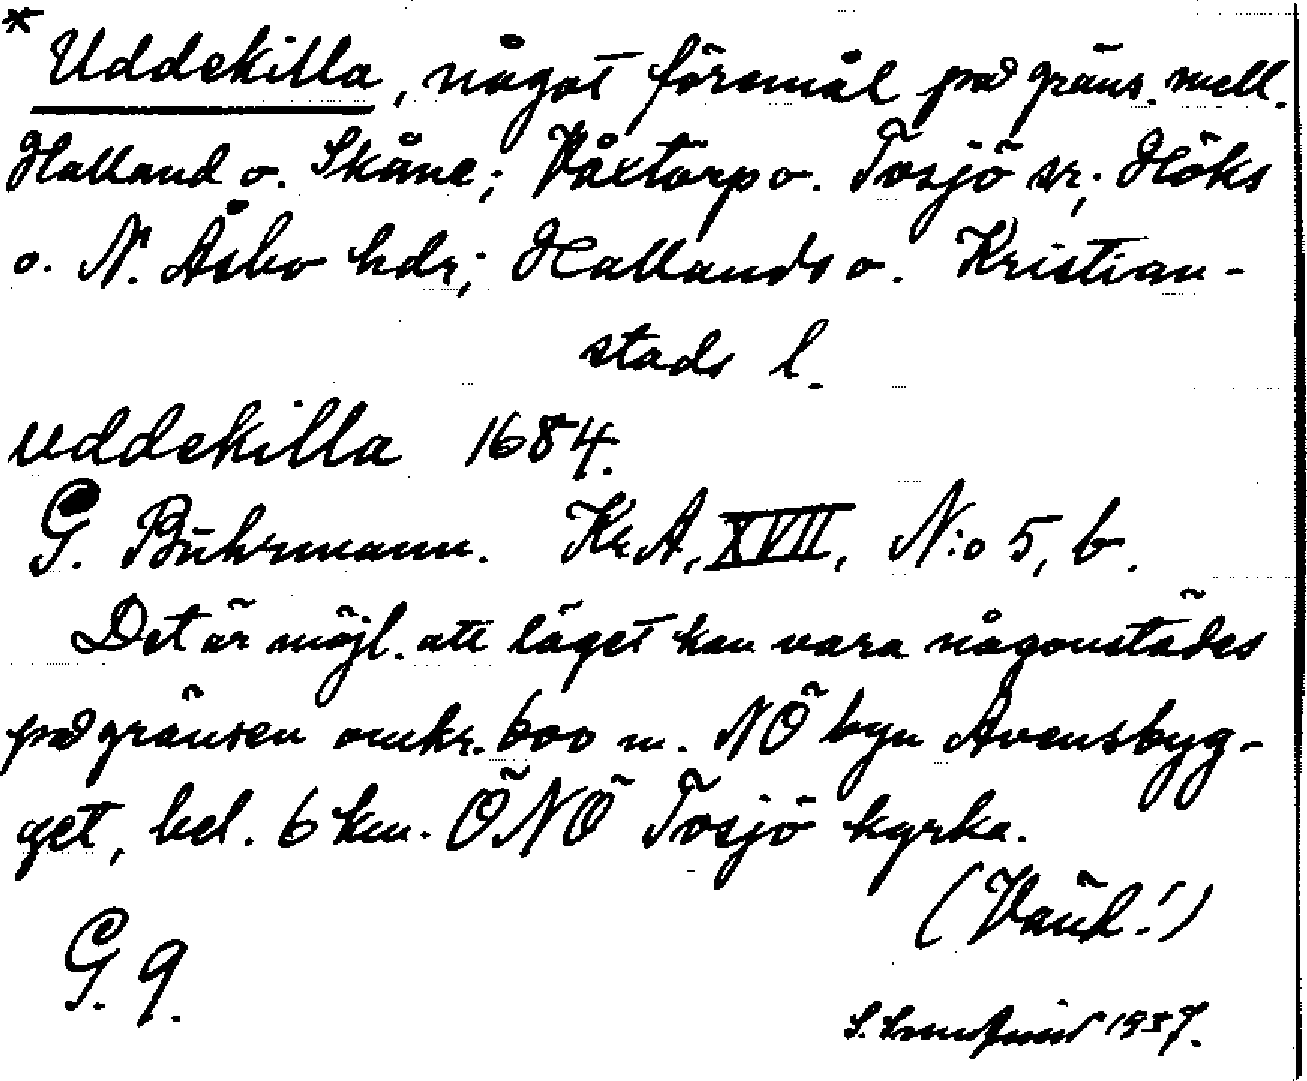 * Uddekilla, något föremål på gräns. mell.
Halland o. Skåne; Våxtorp o. Tosjö sr; Höks
o. N. Åsbo hdr; Hallands o. Kristian-
stads l.
uddekilla 1684.
G. Bührmann. Kr.A, XVII, N:o 5, b.
Det är möjl. att läget kan vara någonstädes
på gränsen omkr. 600 m. NÖ byn Avensbyg-
get, bel. 6 km. ÖNÖ Tosjö kyrka.
(Vänd!)
G. 9.
S. 1937.